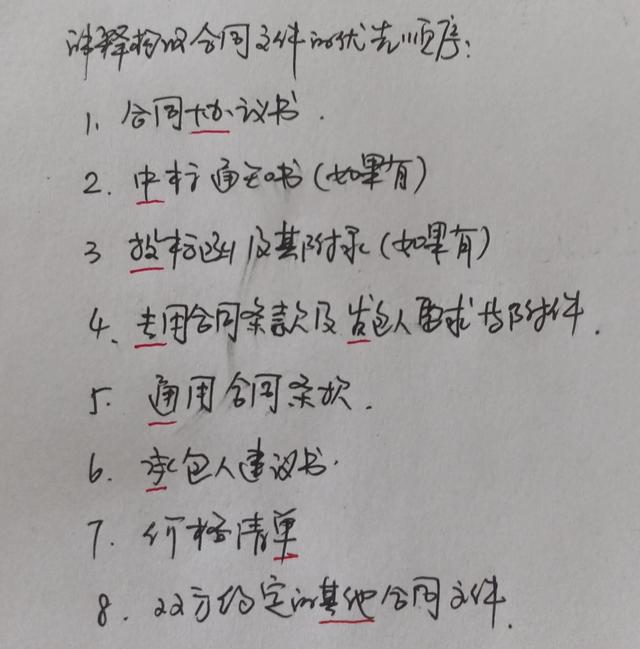 解释构成合同文件的优先顺序:
1. 合同协议书.
2. 中标通知书(如果有)
3 投标函及其附录(如果有)
4. 专用合同条款及发包人要求与附件.
5. 通用合同条款.
6. 承包人建议书.
7. 价格清单
8. 双方约定的其他合同文件.